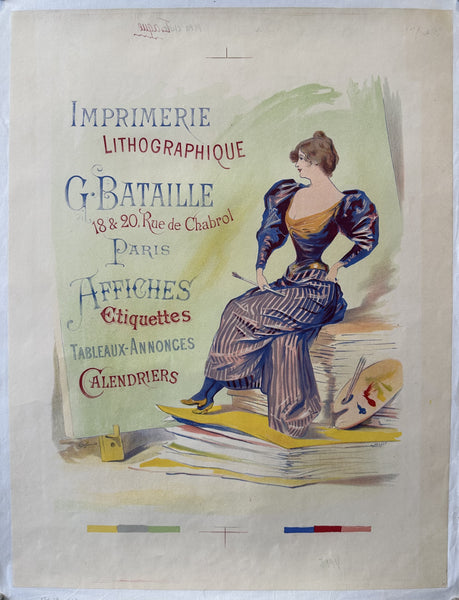 IMPRIMERIE
LITHOGRAPHIQUE
G. BATAILLE
18 & 20, Rue de Chabrol
PARIS
AFFICHES
Etiquettes
TABLEAUX-ANNONCES
CALENDRIERS